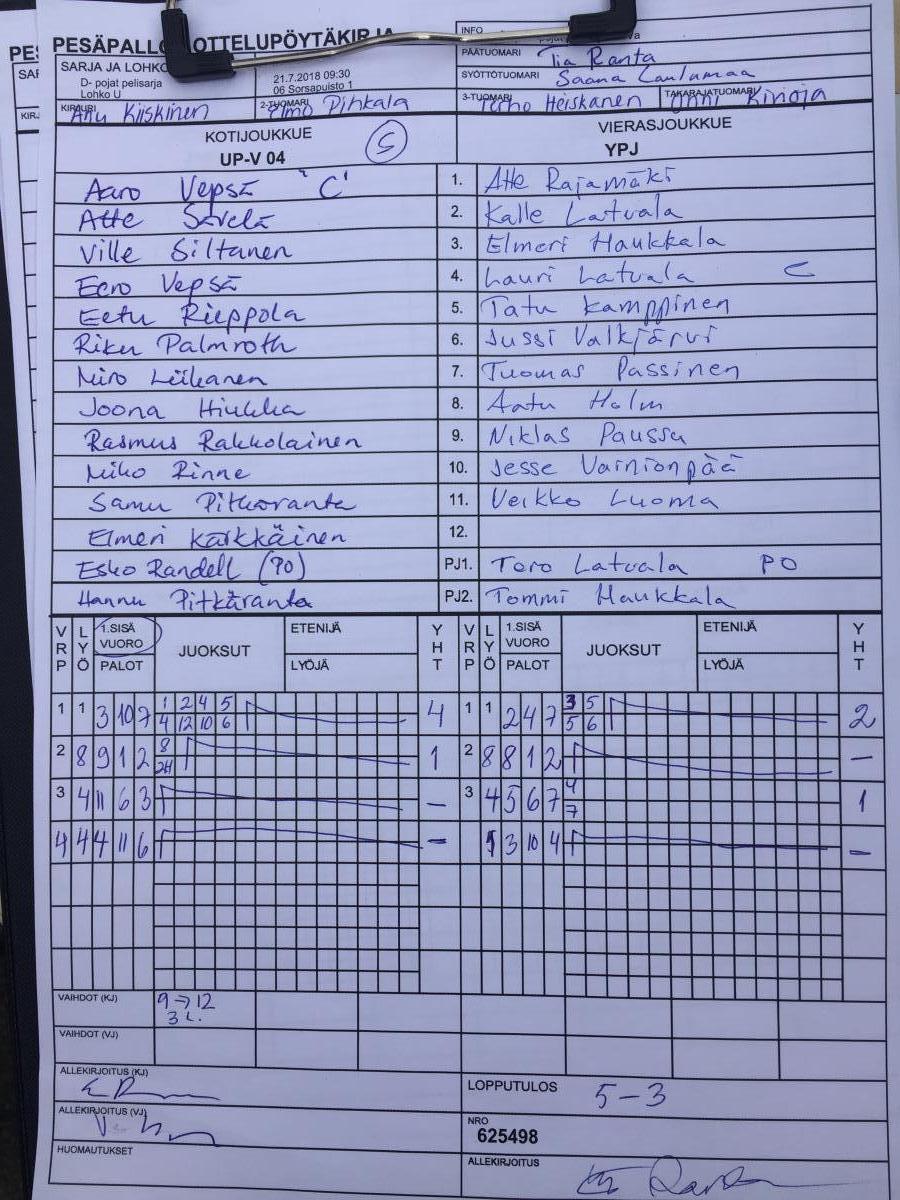 PESÄPALLO OTTELUPÖYTÄKIRJA
INFO
PÄÄTUOMARI Tia Ranta
SARJA JA LOHKO
D- pojat pelisarja
Lohko U
21.7.2018 09:30
06 Sorsapuisto 1
SYÖTTÖTUOMARI Saana Laulumaa
KIRJURI Attu Kiiskinen
2-TUOMARI Elmo Pihkala
3-TUOMARI Terho Heiskanen
TAKARAJATUOMARI Onni Kivioja
KOTIJOUKKUE
UP-V 04
5
VIERASJOUKKUE
YPJ
Aaro Vepsä "C" 1. Atte Rajamäki
Atte Savela 2. Kalle Latvala
Ville Siltanen 3. Elmeri Haukkala
Eero Vepsä 4. Lauri Latvala C
Eetu Rieppola 5. Tatu Kamppinen
Riku Palmroth 6. Jussi Valkjärvi
Miro Leikanen 7. Tuomas Passinen
Joona Hiukka 8. Aatu Holm
Rasmus Rakkolainen 9. Niklas Paussu
Miko Rinne 10. Jesse Vainionpää
Samu Pitkäranta 11. Veikko Luoma
Elmeri Karkkäinen 12.
Esko Randell (PO) PJ1. Toro Latvala PO
Hannu Pitkäranta PJ2. Tommi Haukkala
VRP LYÖ 1.SISÄ VUORO PALOT JUOKSUT ETENIJÄ LYÖJÄ YHT VRP LYÖ 1.SISÄ VUORO PALOT JUOKSUT ETENIJÄ LYÖJÄ YHT
1 1 3 10 7 1 2 4 5 4 1 1 2 4 7 3 5 2
4 12 10 6 5 6
2 8 9 1 2 8 1 2 8 8 1 2 –
3 4 11 6 3 – 3 4 5 6 7 4 1
7
4 4 4 11 6 – 3 10 4 –
VAIHDOT (KJ) 9 → 12
3 L.
VAIHDOT (VJ)
ALLEKIRJOITUS (KJ)
LOPPUTULOS 5–3
ALLEKIRJOITUS (VJ)
NRO
625498
HUOMAUTUKSET
ALLEKIRJOITUS